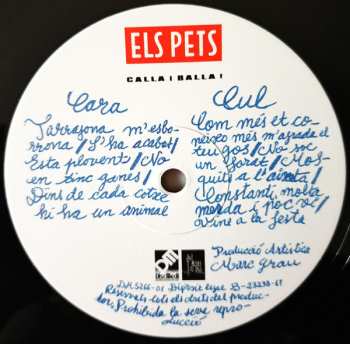 ELS PETS
CALLA I BALLA!
Cara
Tarragona m'esbo-
rrona/S'ha acabat/
Esta plovent/No
en tinc ganes/
Dins de cada cotxe
hi ha un animal
Cul
Com més et co-
neixo més m'agrada el
teu gos/No soc
un forat/Mos-
quits a l'aixeta/
Constantí molta
merda i poc vi/
Vine a la festa
Producció Artística
Marc Grau
DiscMedi
D.M.5266-01 Diposit legal B-23238-91
Reservats tots els drets del produc-
tor. Prohibida la seva repro-
ducció